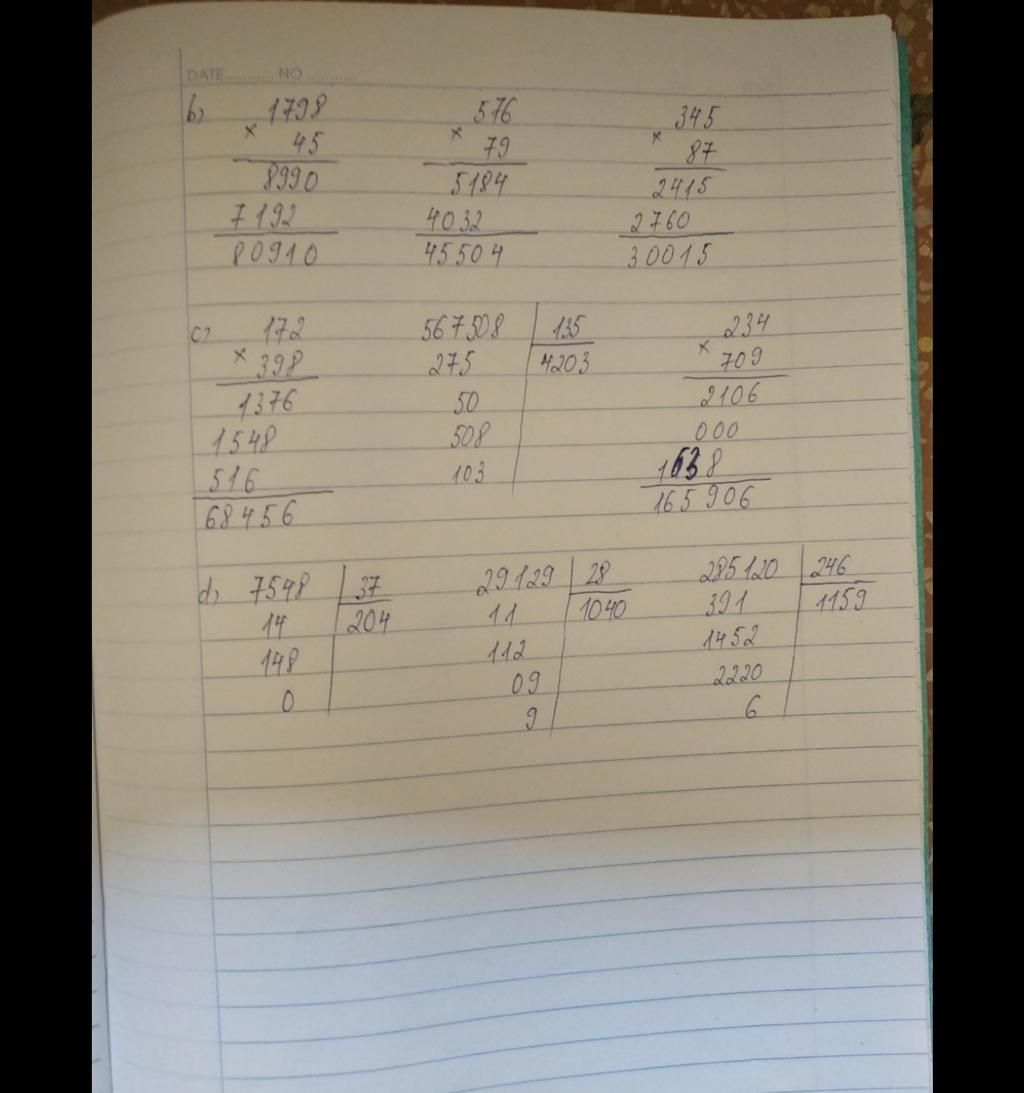 DATE........... NO ...........
b) 1798 576 345
× 45 × 79 × 87
8990 5184 2415
7192 4032 2760
80910 45504 30015
c) 172 567508 135 234
× 398 275 4203 × 709
1376 50 2106
1548 508 000
516 103 1638
68456 165906
d) 7548 37 29129 28 285120 246
14 204 11 1040 391 1159
148 112 1452
0 09 2220
9 6